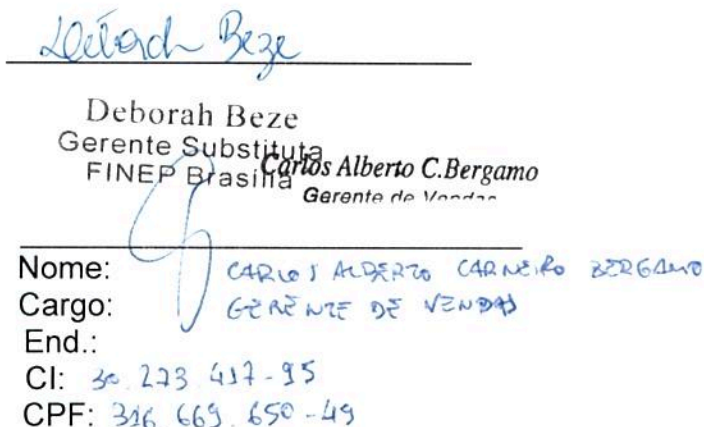 Deborah Beze
Deborah Beze
Gerente Substituta
FINEP Brasília
Carlos Alberto C.Bergamo
Gerente de Vendas
Nome: CARLOS ALBERTO CARNEIRO BERGAMO
Cargo: GERENTE DE VENDAS
End.:
CI: 30.273.417-95
CPF: 316.669.650-49